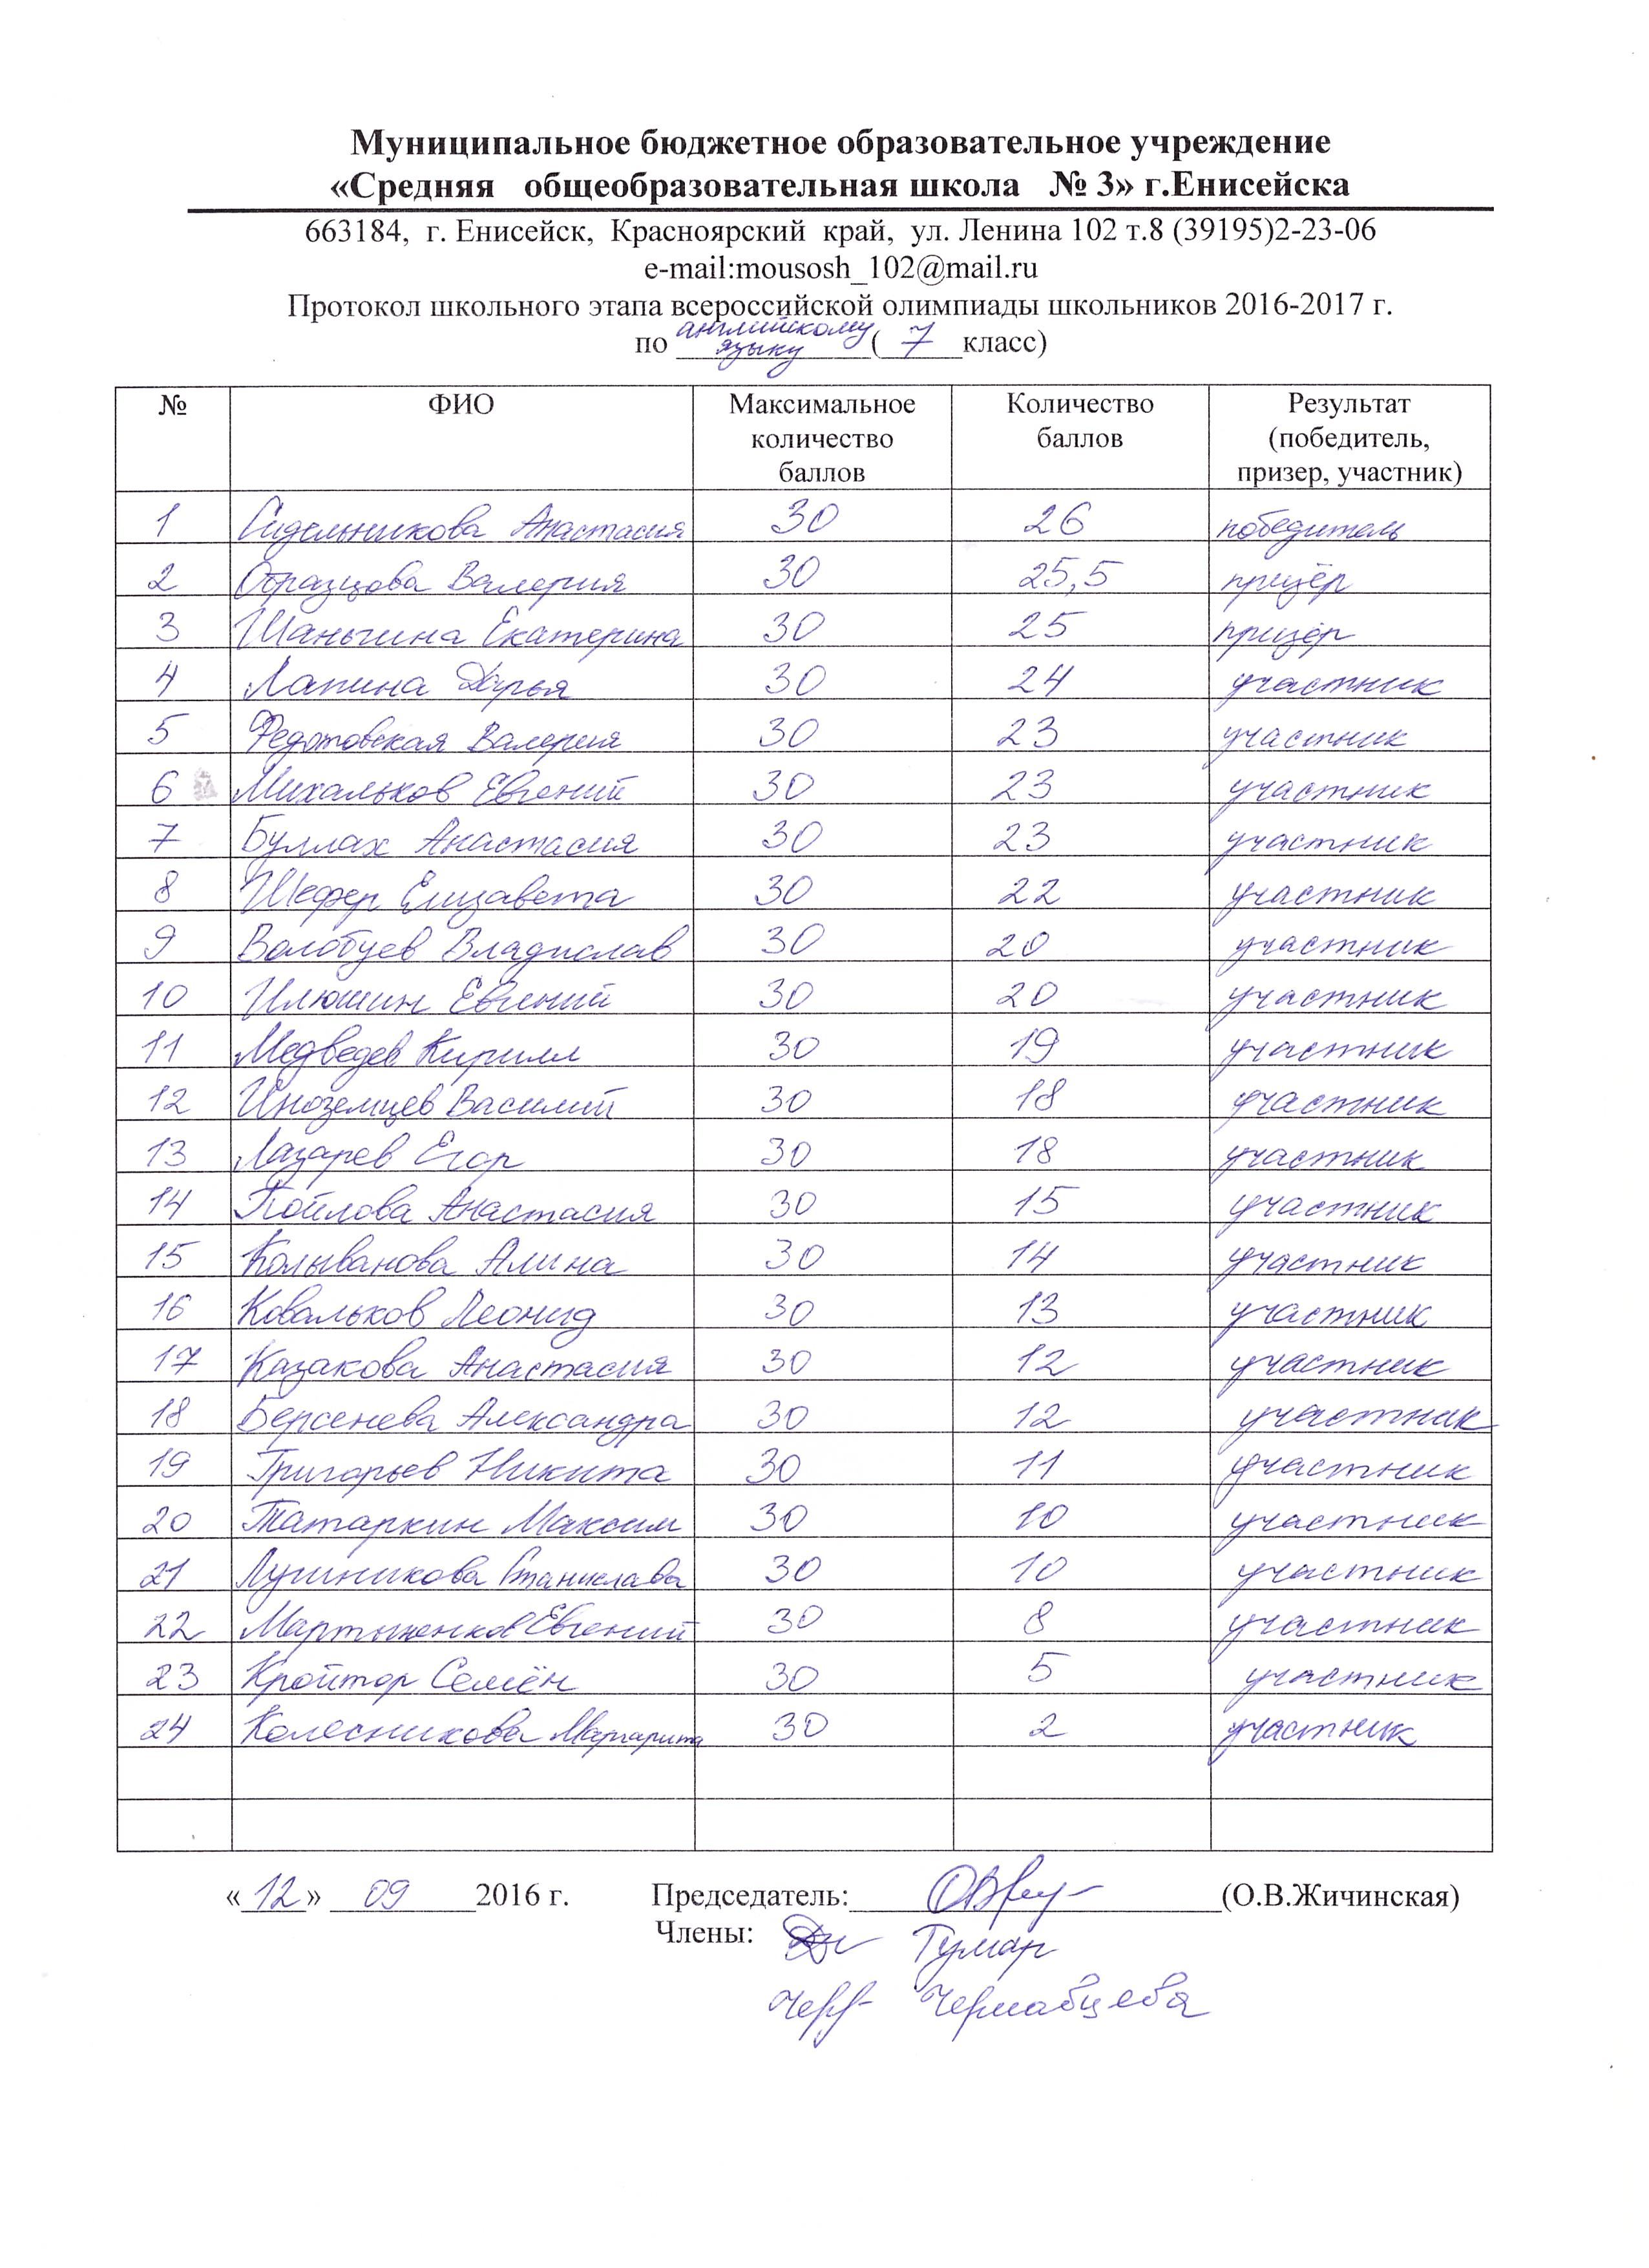 Муниципальное бюджетное образовательное учреждение
«Средняя общеобразовательная школа № 3» г.Енисейска
663184, г. Енисейск, Красноярский край, ул. Ленина 102 т.8 (39195)2-23-06
e-mail:mousosh_102@mail.ru
Протокол школьного этапа всероссийской олимпиады школьников 2016-2017 г.
по английскому языку (7 класс)
№ ФИО Максимальное количество баллов Количество баллов Результат (победитель, призер, участник)
1 Сидельникова Анастасия 30 26 победитель
2 Образцова Валерия 30 25,5 призёр
3 Шаньгина Екатерина 30 25 призёр
4 Лапина Дарья 30 24 участник
5 Федотовская Валерия 30 23 участник
6 Михальков Евгений 30 23 участник
7 Буллах Анастасия 30 23 участник
8 Шефер Елизавета 30 22 участник
9 Волобуев Владислав 30 20 участник
10 Илюшин Евгений 30 20 участник
11 Медведев Кирилл 30 19 участник
12 Иноземцев Василий 30 18 участник
13 Лазарев Егор 30 18 участник
14 Пойлова Анастасия 30 15 участник
15 Колыванова Алина 30 14 участник
16 Ковальков Леонид 30 13 участник
17 Казакова Анастасия 30 12 участник
18 Берсенева Александра 30 12 участник
19 Григорьев Никита 30 11 участник
20 Татаркин Максим 30 10 участник
21 Лушникова Станислава 30 10 участник
22 Мартыненков Евгений 30 8 участник
23 Кройтор Семён 30 5 участник
24 Колесникова Маргарита 30 2 участник
«12» 09 2016 г. Председатель: (О.В.Жичинская)
Члены: